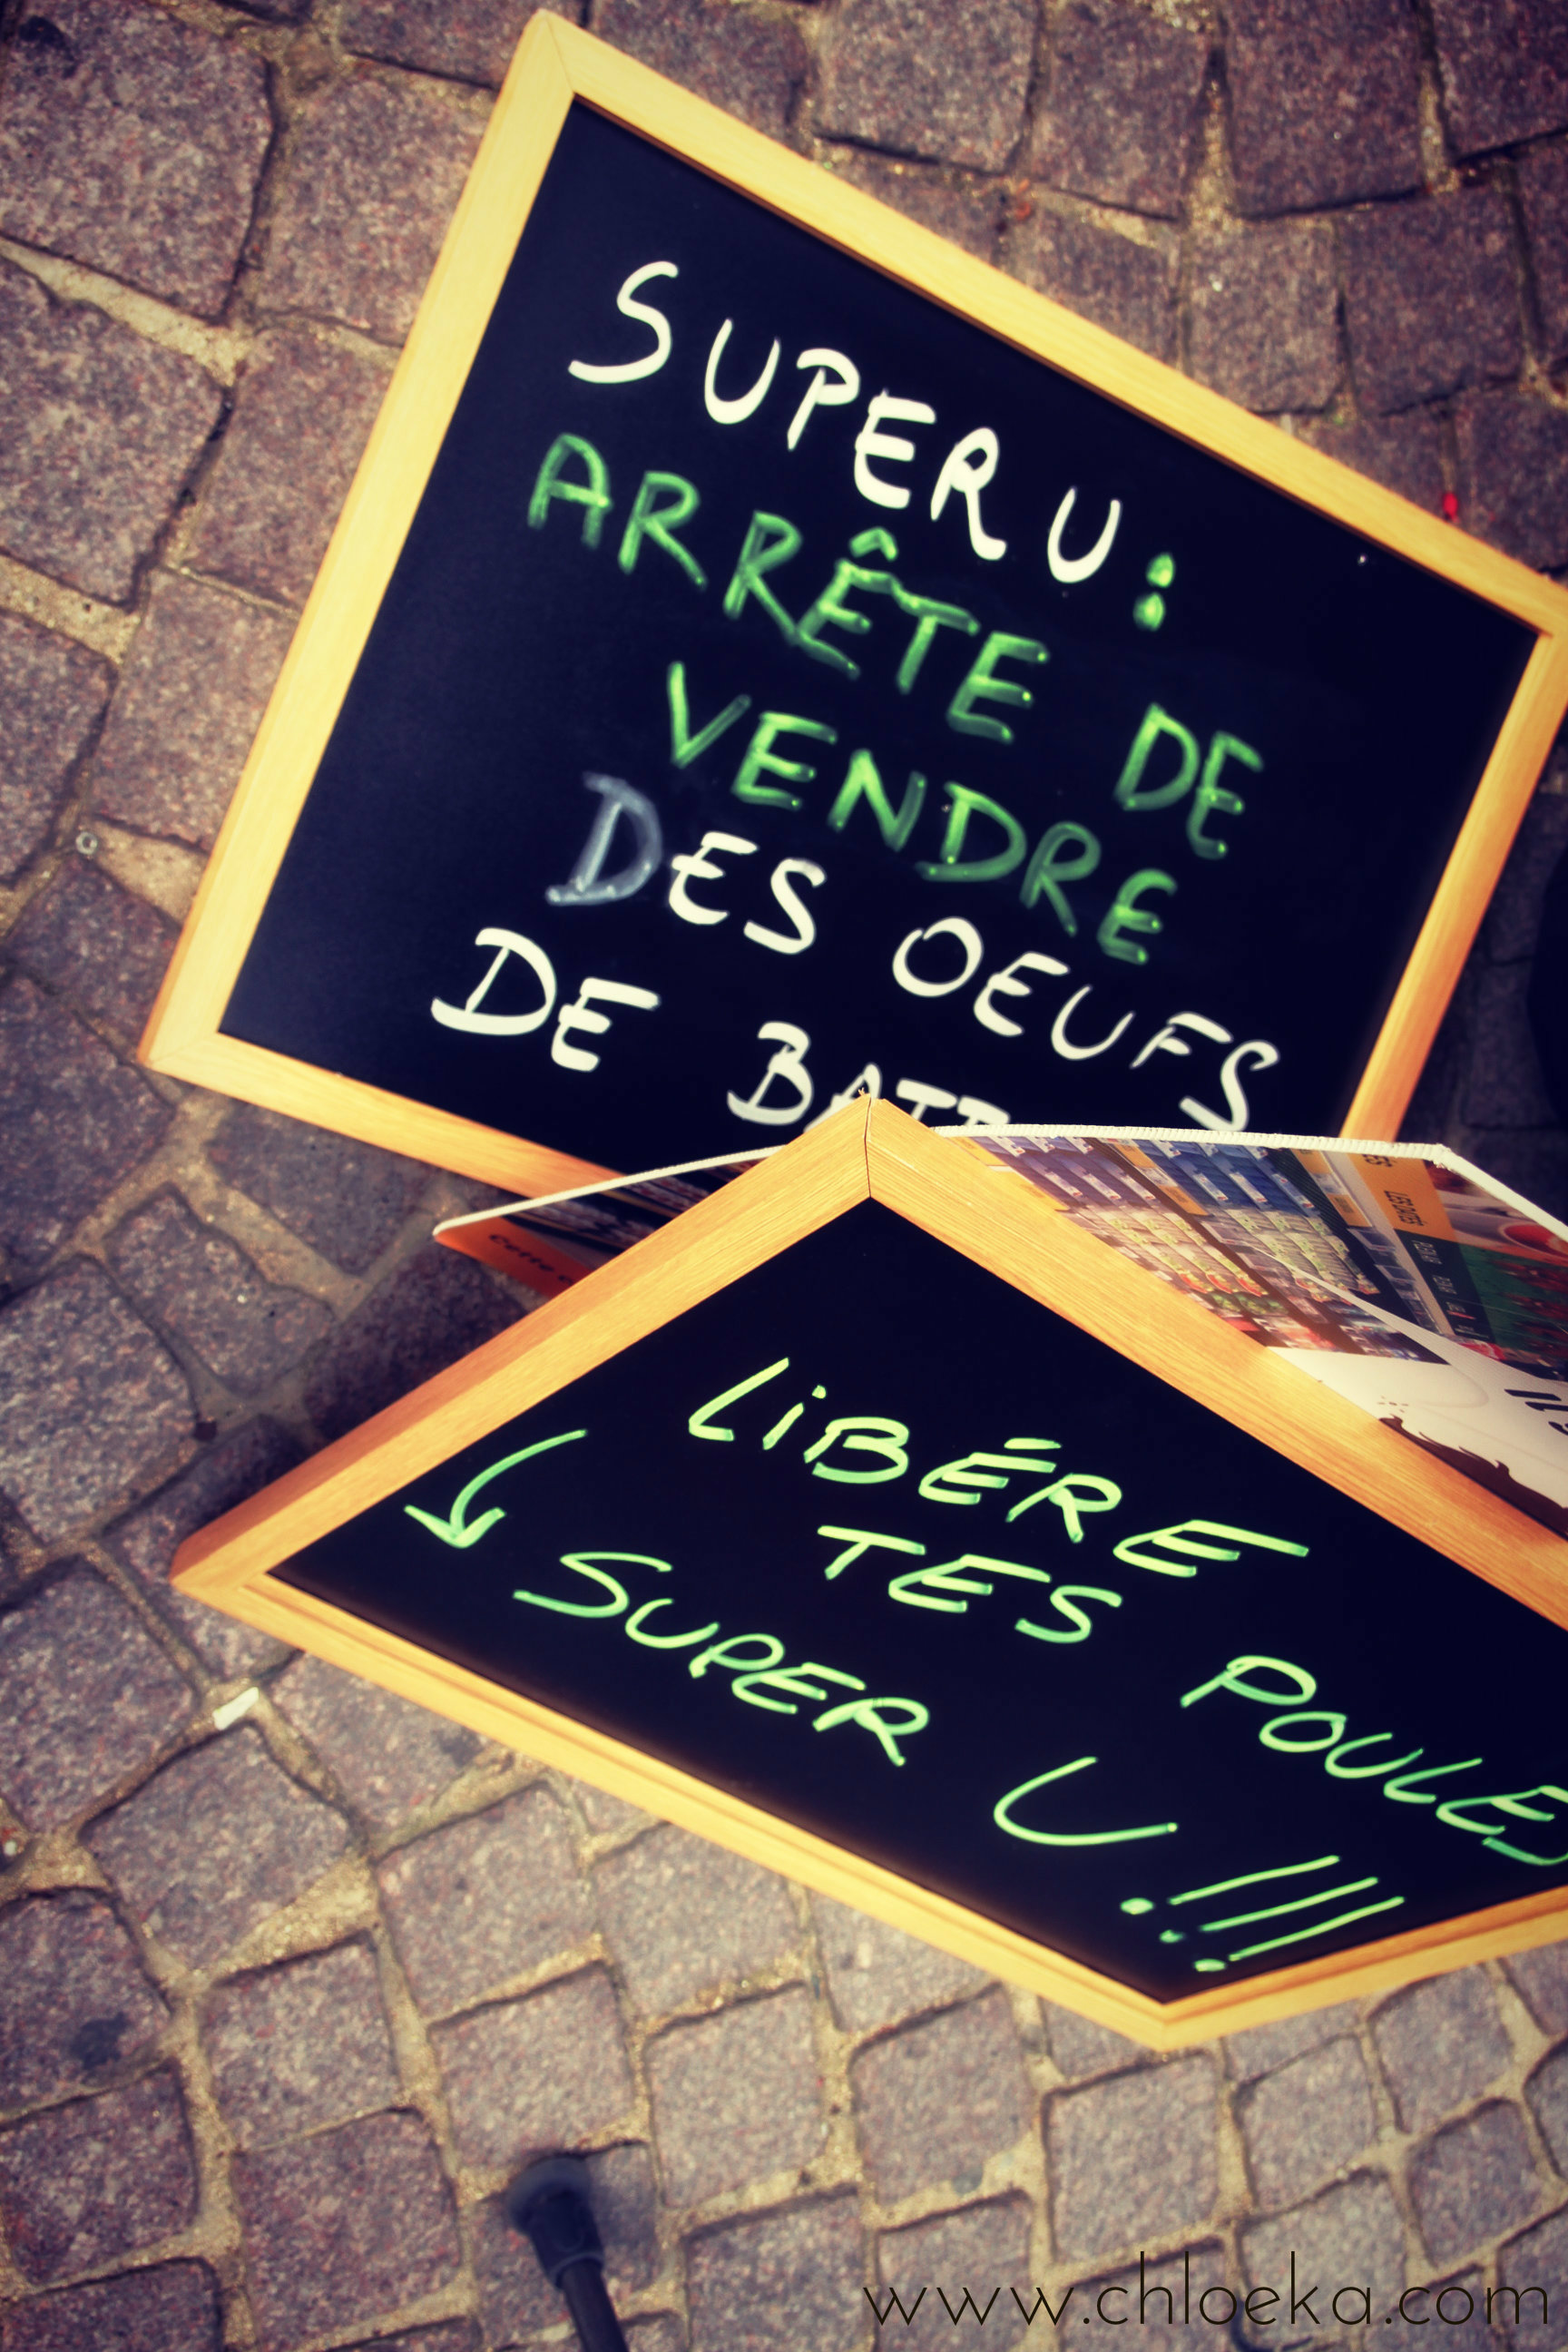 SUPER U :
ARRÊTE DE
VENDRE
DES OEUFS
DE
LiBÉRE
TES POULES
SUPER U !!!
www.chloeka.com